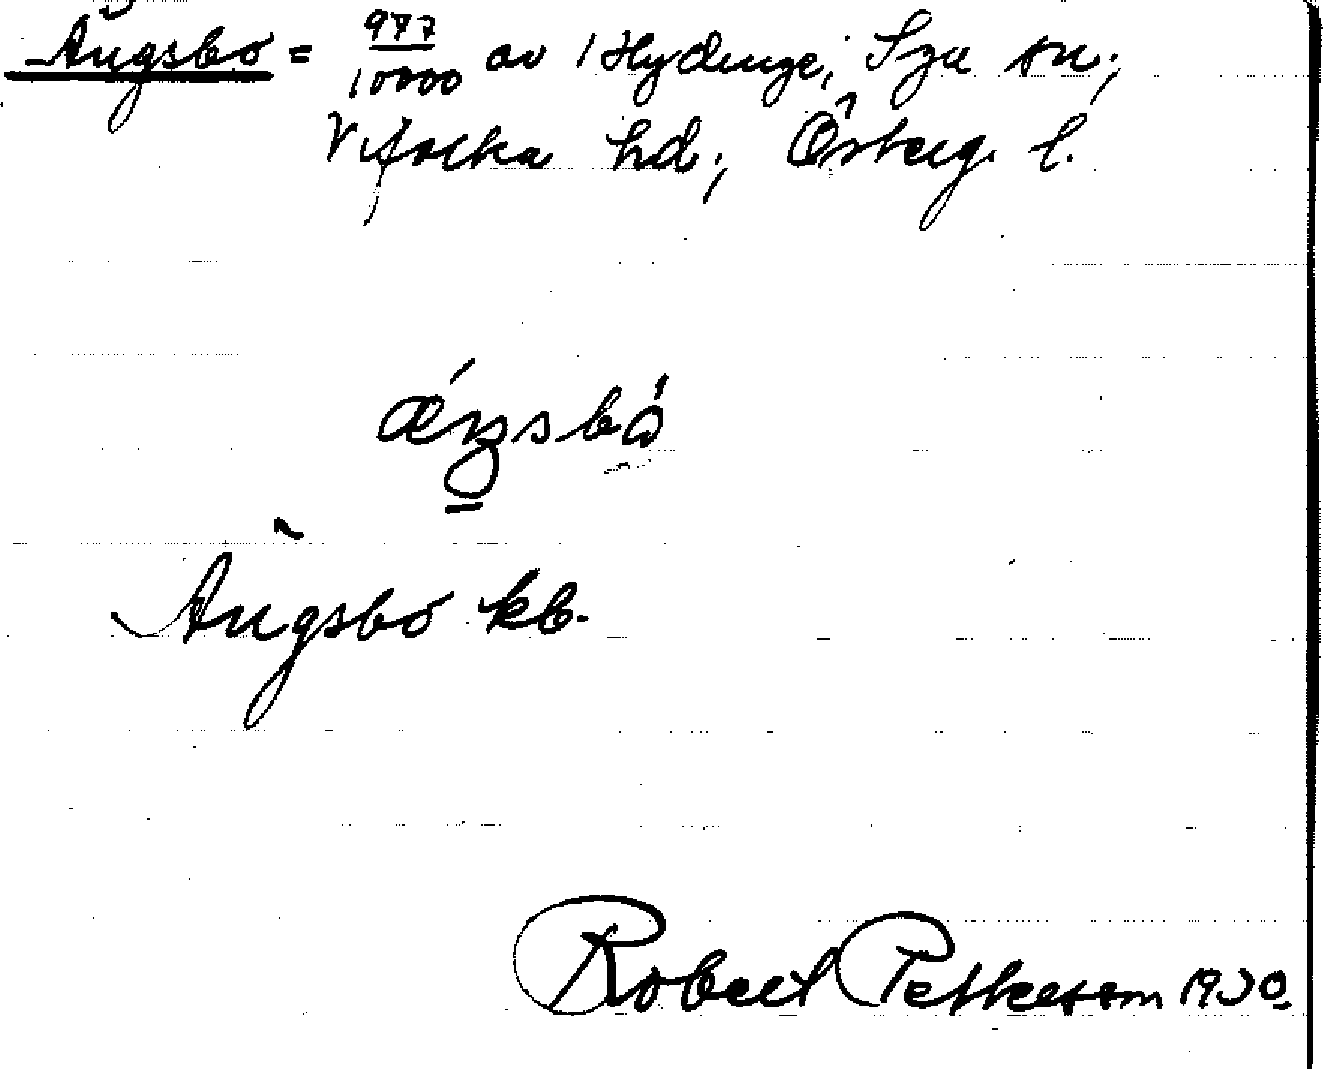 Ängsbo = 977/10000 av 1 Hydinge, Sya sn;
Vifolka hd; Österg. l.
ǽŋsbó
Ängsbo kb.
Robert Petterson 1930